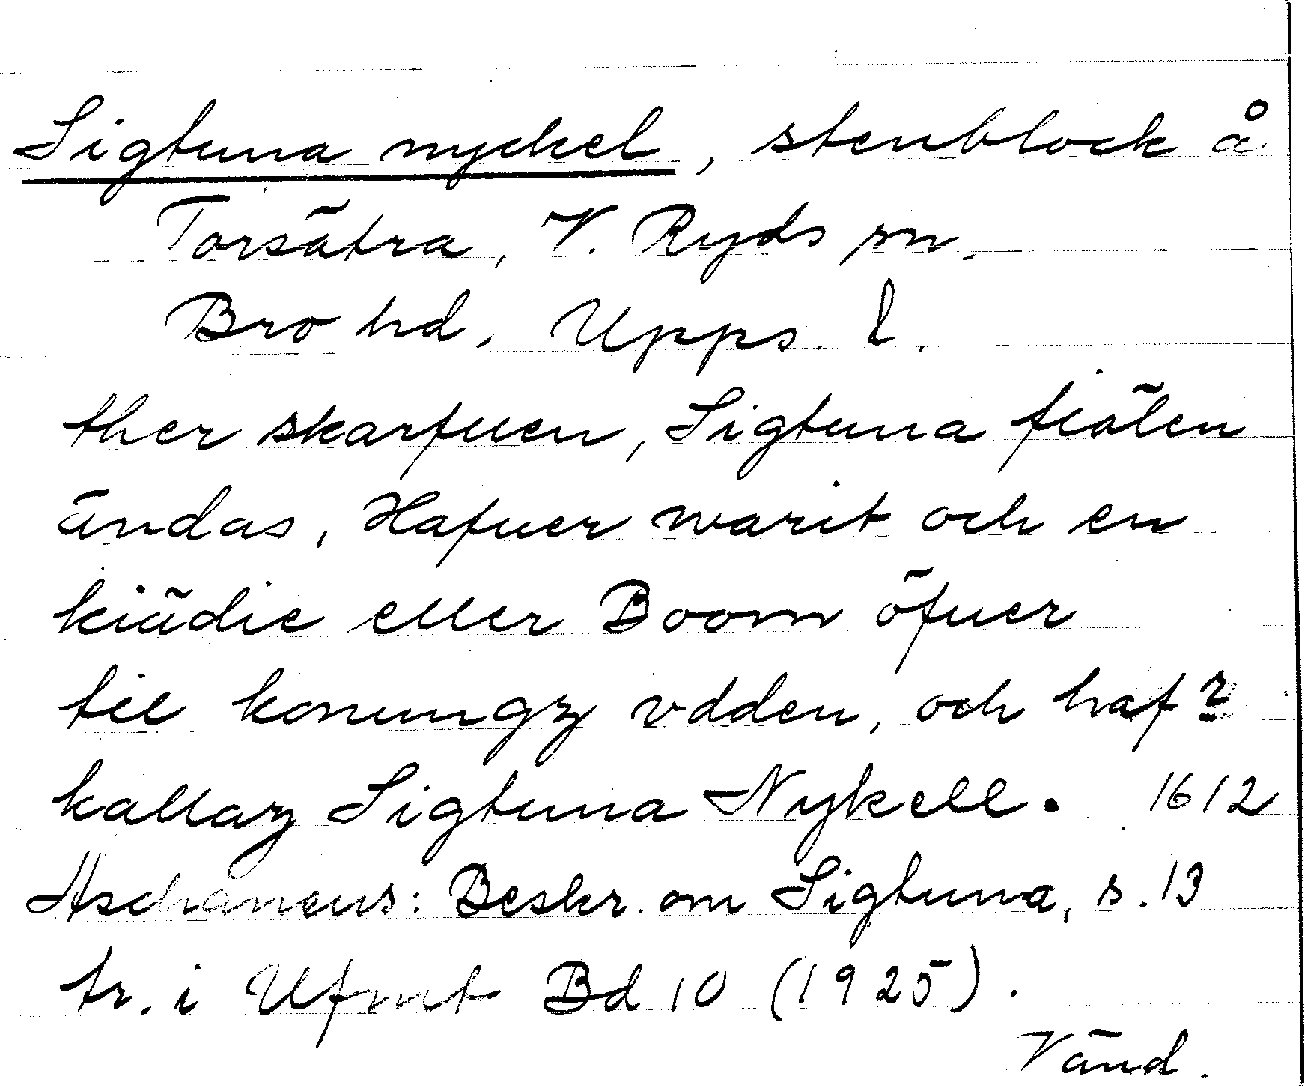 Sigtuna nyckel, stenblock å
Torsätra, V. Ryds sn.
Bro hd, Upps. l.
ther skarfuen, Sigtuna fiälen
ändas, Hafuer warit och en
kiädie eller Boom öfuer
til konungz vdden, och haf
kallaz Sigtuna Nykell. 1612
Aschaneus: Beskr. om Sigtuna, s. 13
tr. i Ufmt Bd 10 (1925).
Vänd.